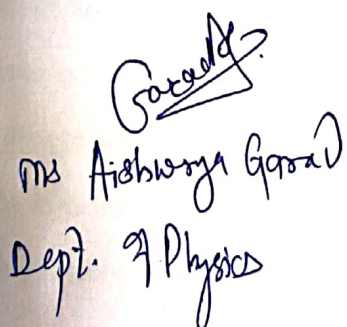 Garad A.
Ms Aishwarya Garad
Dept. of Physics